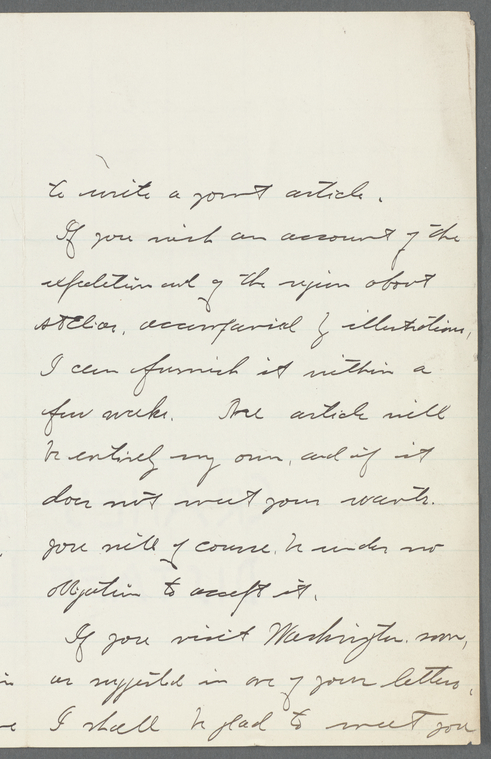 to write a joint article.
If you wish an account of the
expedition and of the region about
St Elias, accompanied by illustrations,
I can furnish it within a
few weeks. The article will
be entirely my own, and if it
does not meet your wants.
you will of course, be under no
obligation to accept it.
If you visit Washington soon,
as suggested in one of your letters,
I shall be glad to meet you